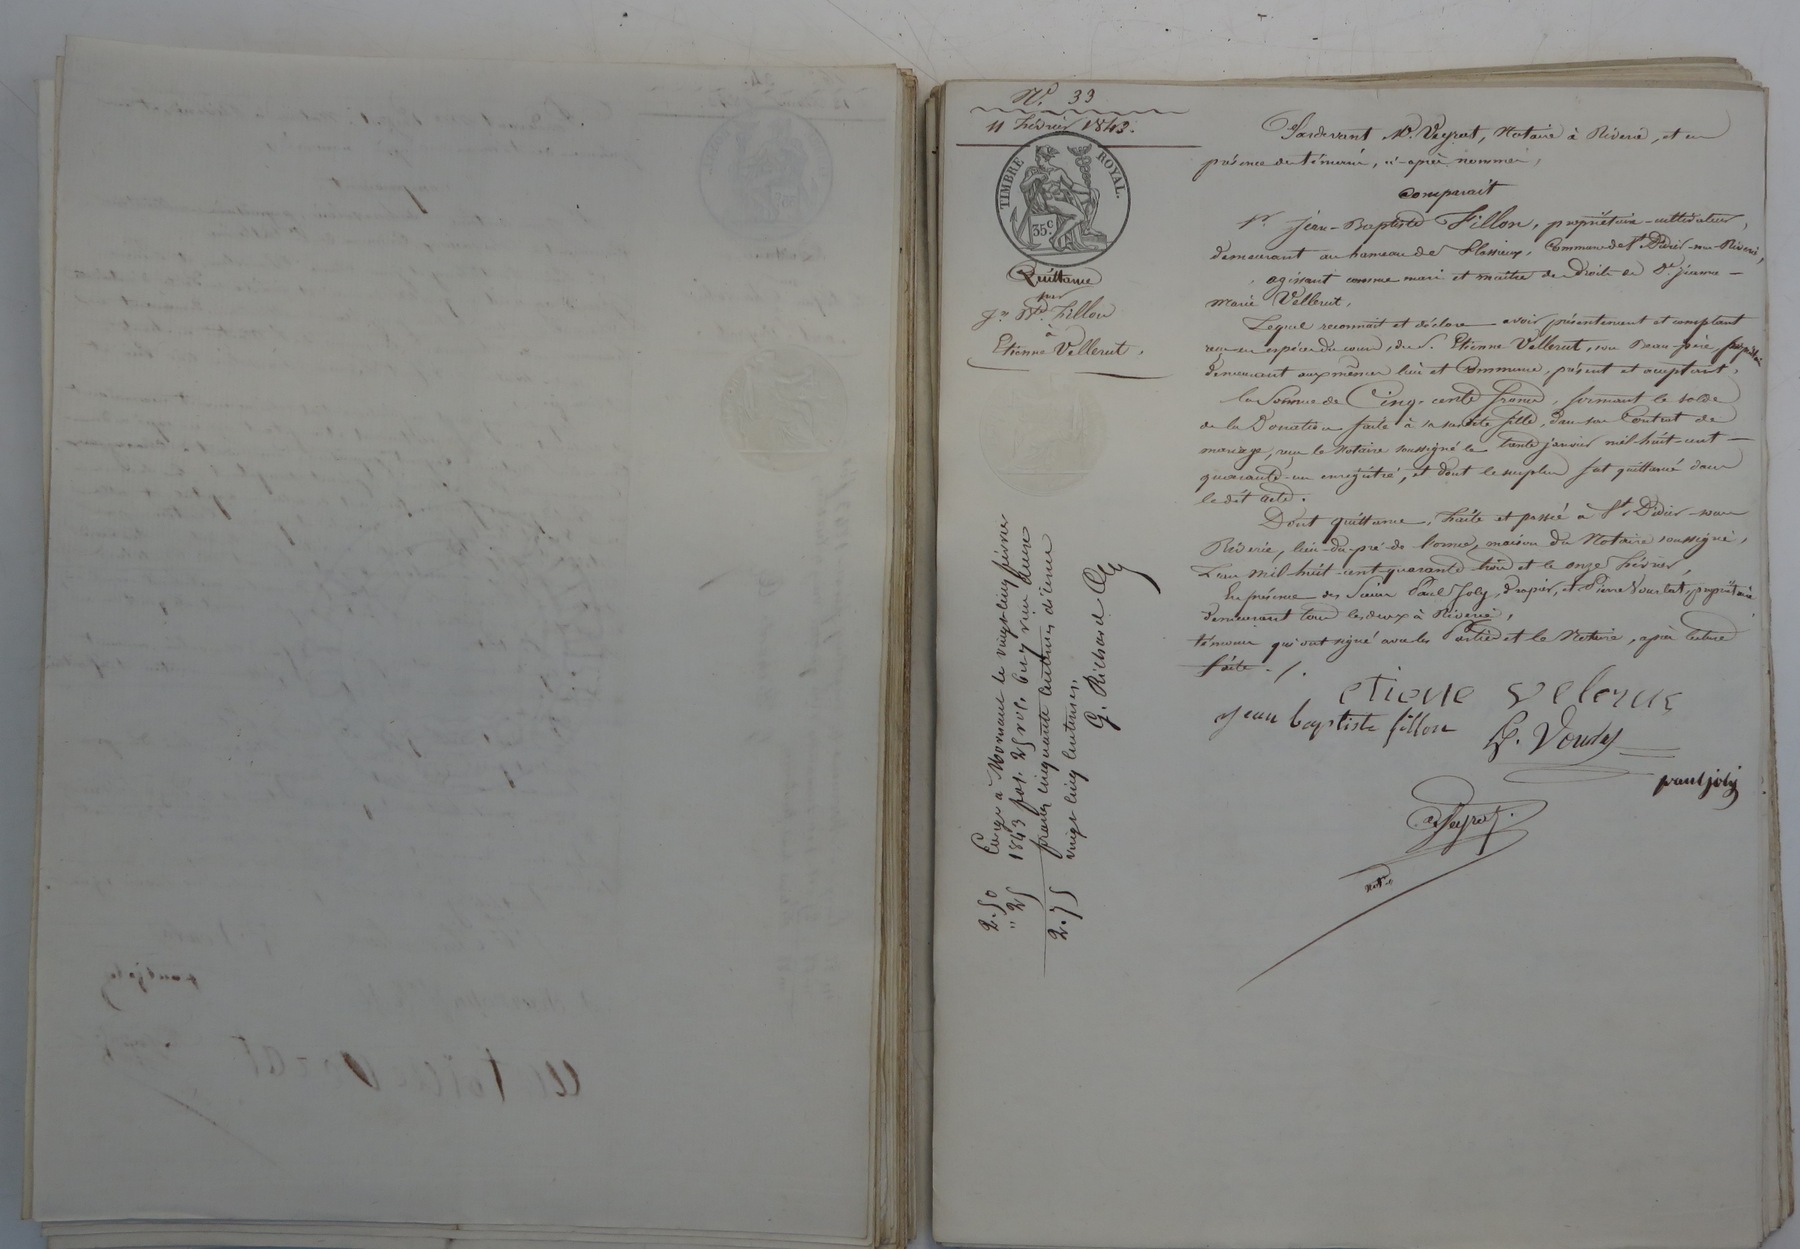 N.° 33
11 Février 1843.
TIMBRE ROYAL.
35 c
Quittance
par
J.n B.te Fillon
à
Etienne Vellerut.
Pardevant M.e Veyrat, Notaire à Riverie, et en
présence des témoins, ci-après nommés,
Comparait
S.r Jean-Baptiste Fillon, propriétaire-cultivateur,
demeurant au hameau de Commune de S.t Didier-sous-Riverie,
agissant comme mari et maître des droits de D.e Jeanne-
Marie Vellerut,
Lequel reconnait et déclare avoir présentement et comptant
reçu en espèces du cours, du S. Etienne Vellerut, son Beau-père,
demeurant aux mêmes lieu et Commune, présent et acceptant,
la Somme de Cinq-cents francs, formant le solde
de la Donation faite à sa susdite fille, dans son Contrat de
mariage, reçu le Notaire soussigné le trente janvier mil-huit-cent-
quarante-un enregistré, et dont le surplus fut quittancé dans
le dit acte.
Dont quittance, Faite et passé à S.t Didier-sous-
Riverie, lieu-du-pré-de- maison du Notaire soussigné,
L'an mil-huit-cent-quarante trois et le onze Février,
En présence des Sieurs Paul Joly, drapier, et Pierre propriétaire,
demeurant tous les deux à Riverie,
témoins qui ont signé avec les Parties et le Notaire, après lecture
faite ./.
etiene velerut
jean baptiste fillon
paul joly
Veyrat
Not.re
Enrgé à Mornant le vingt cinq février
1843 fol. 25 reçu deux
francs cinquante centimes décime
vingt cinq centimes.
G. Richard
2.50
" 25
2.75